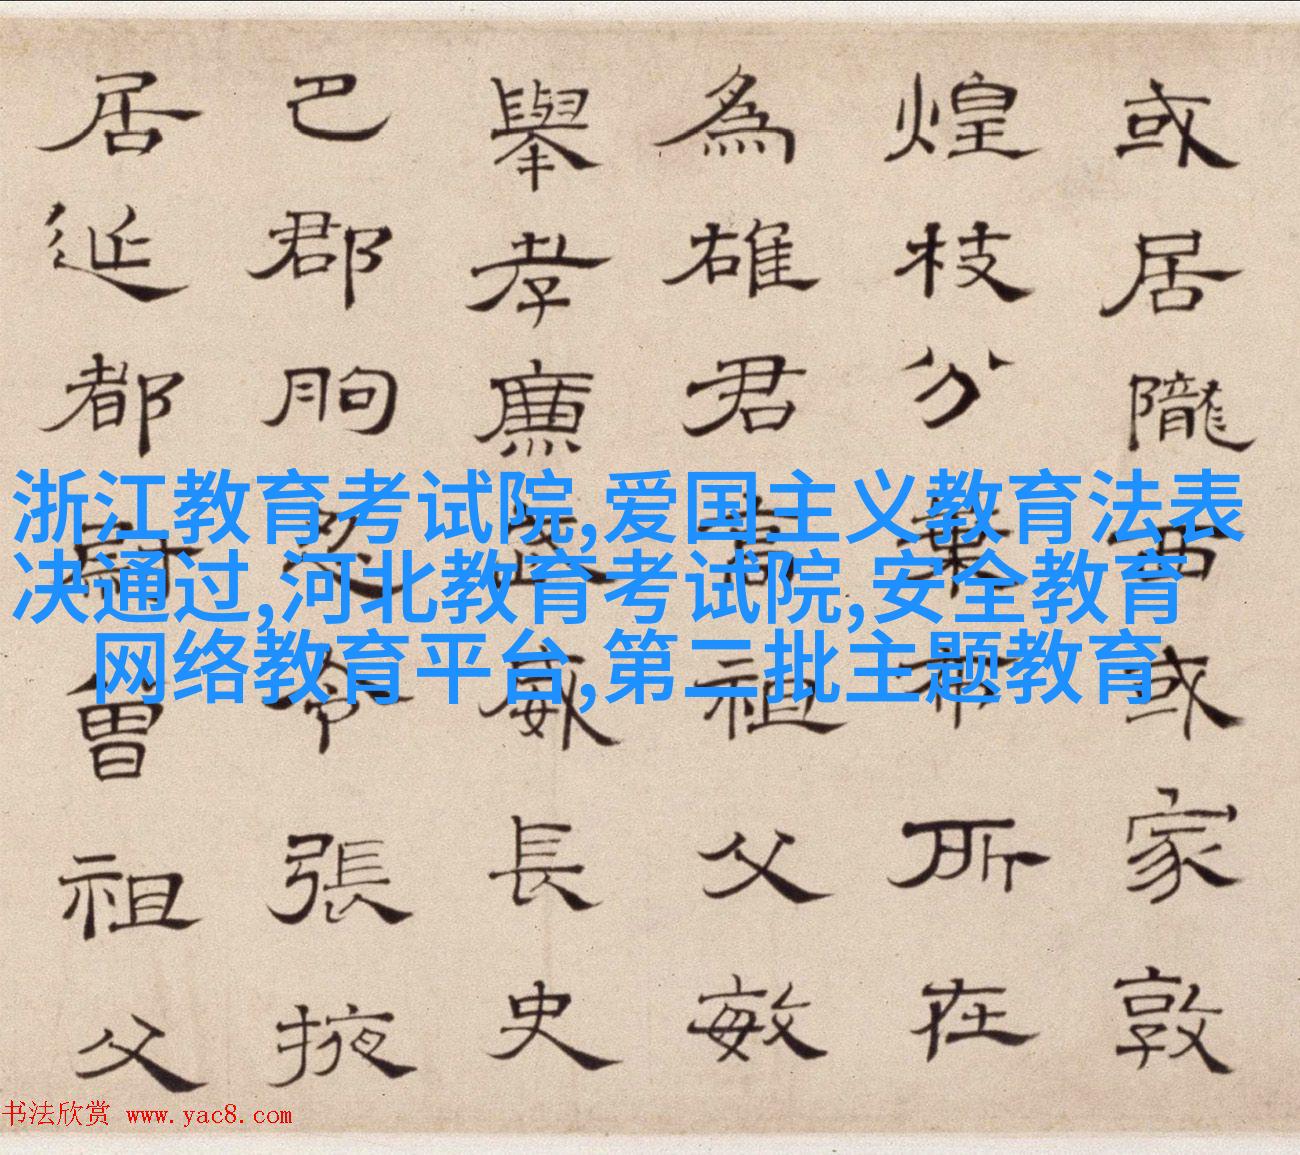 或居隴西或家敦
煌枝分葉布所在
為雄君高祖父敏
舉孝廉武威長史
巴郡朐忍令張掖
居延都尉曾祖父
浙江教育考试院,爱国主义教育法表
决通过,河北教育考试院,安全教育
网络教育平台,第二批主题教育
书法欣赏 www.yac8.com